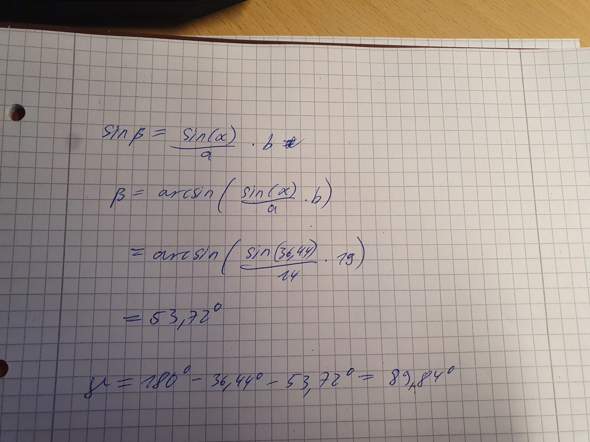 sin β = sin(α)/a · b
β = arcsin( sin(α)/a · b)
= arcsin( sin(36,44)/14 · 19)
= 53,72°
γ = 180° - 36,44° - 53,72° = 89,84°